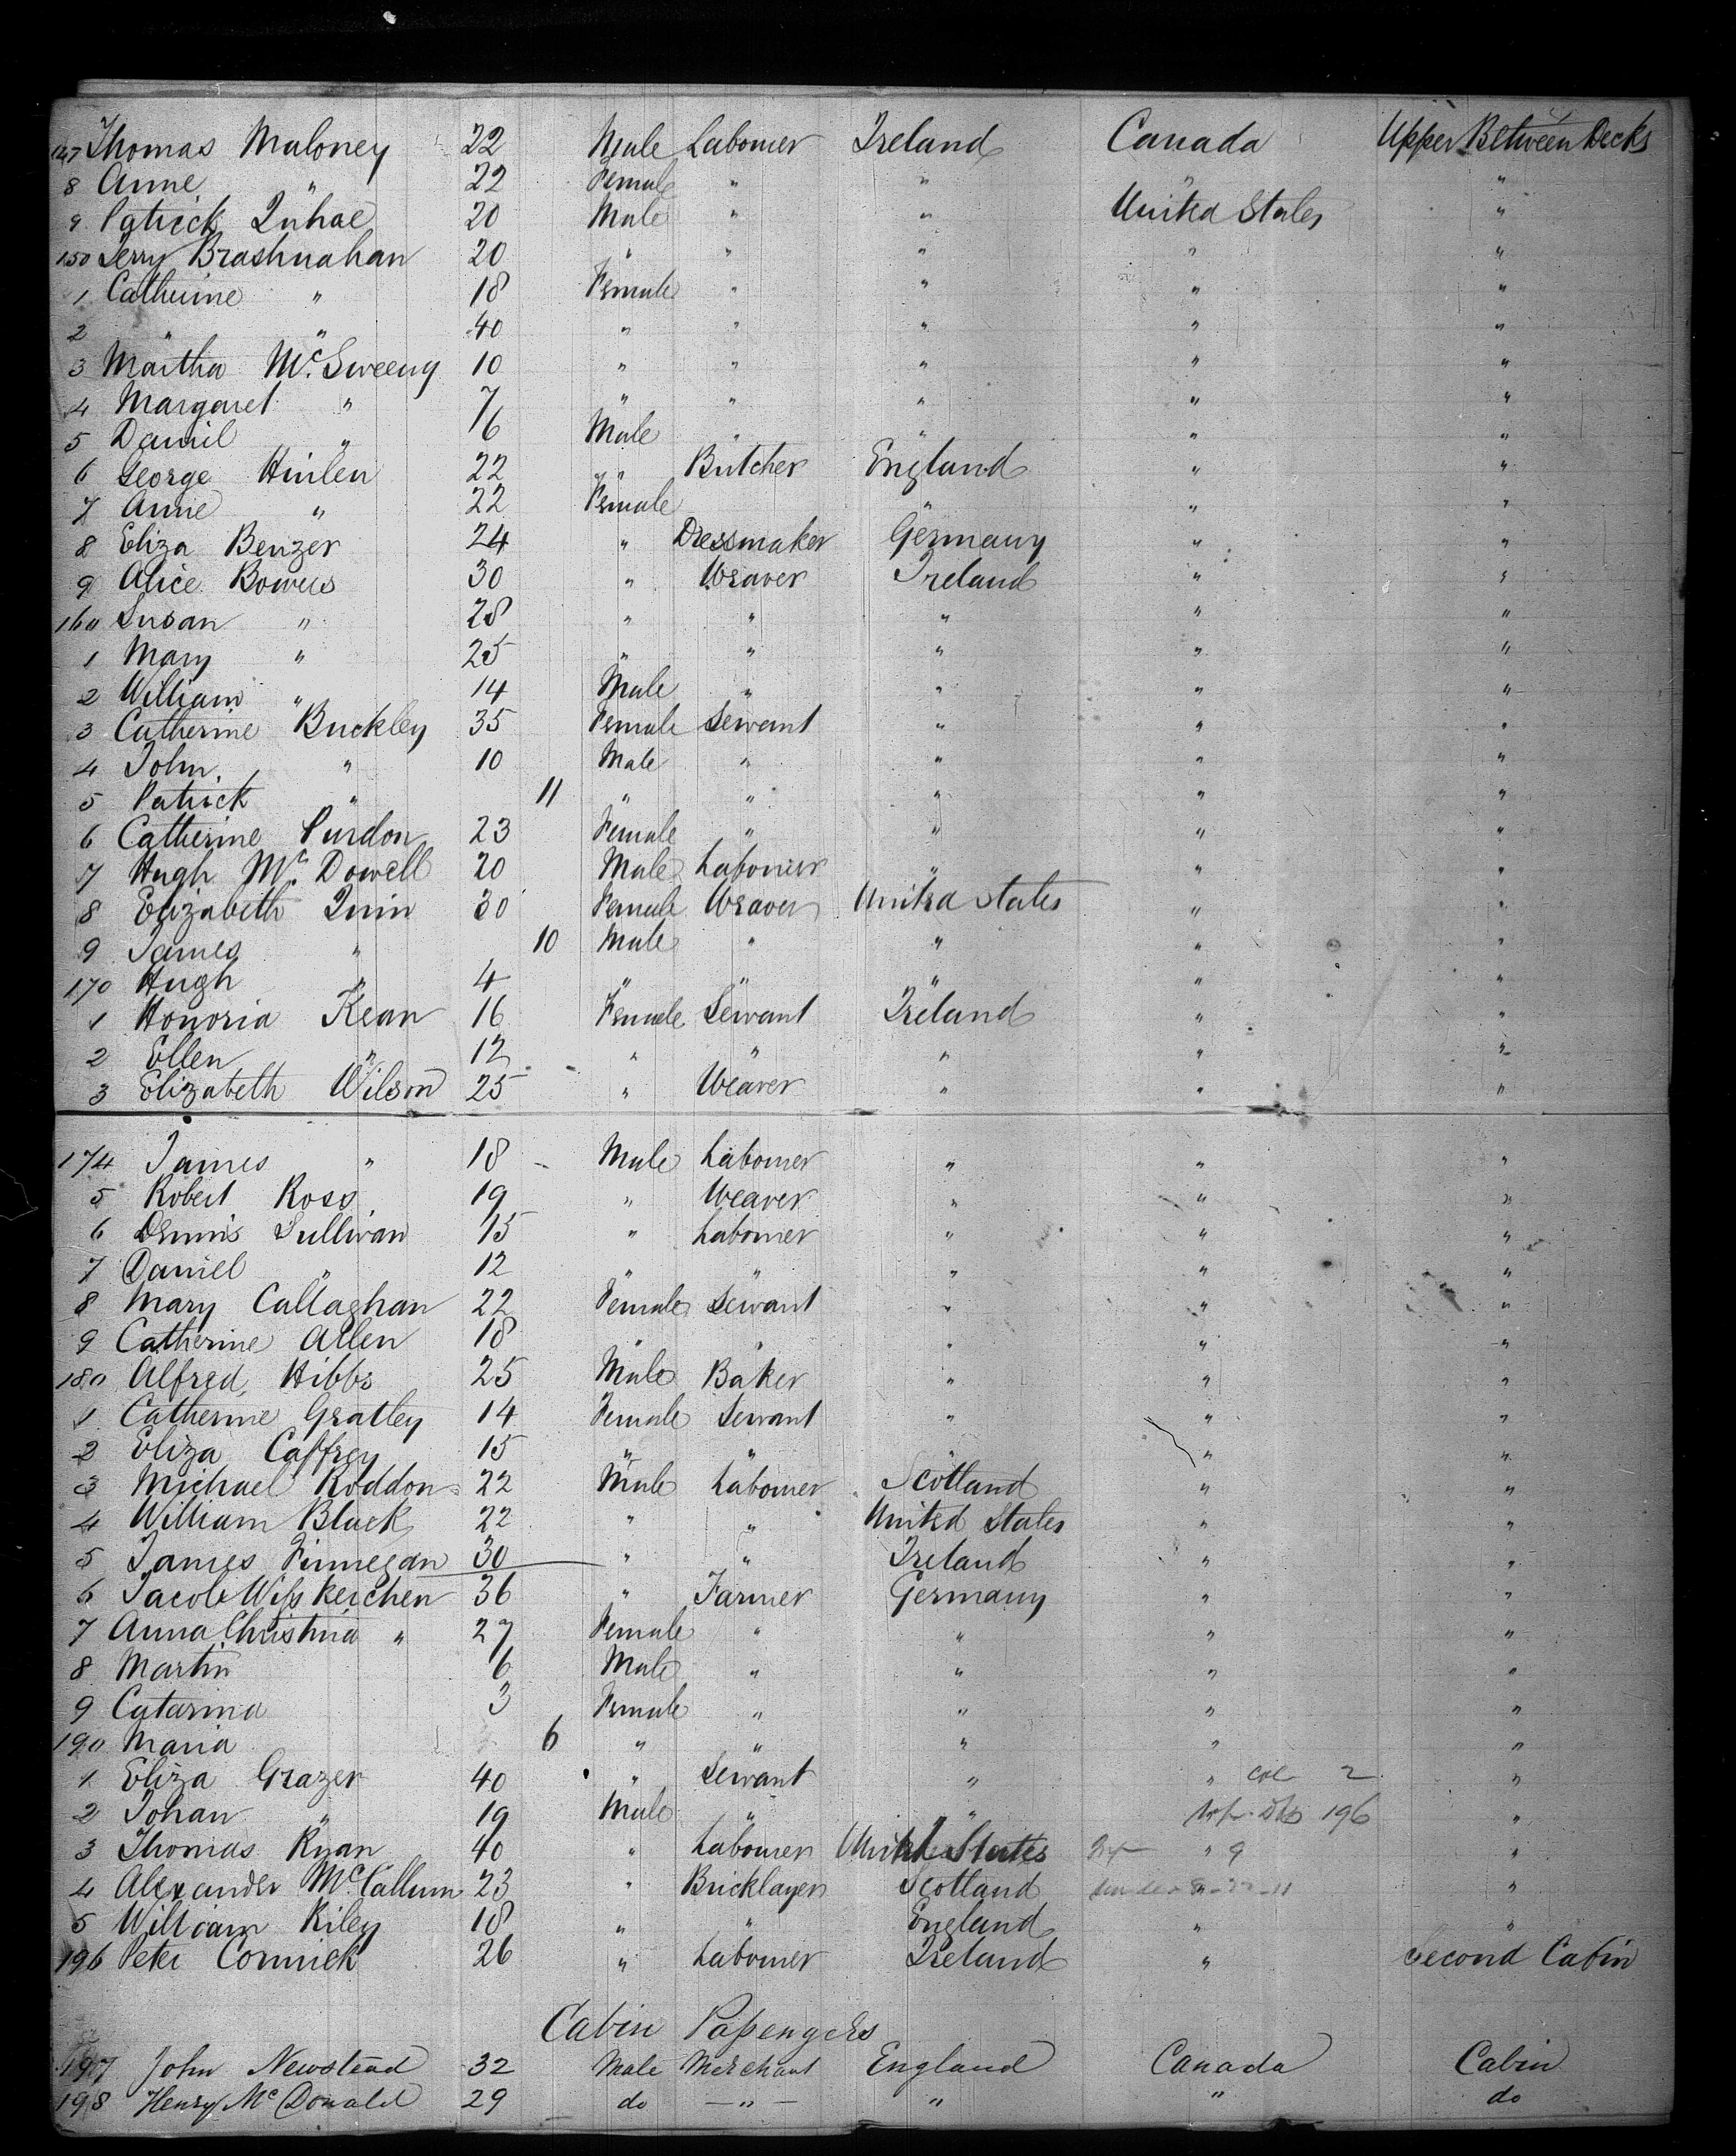 147 Thomas Maloney 22 Male Labourer Ireland Canada Upper Between Decks
8 Anne " 22 Female " " " "
9 Patrick Quhae 20 Male " " United States "
150 Jerry Brashnahan 20 " " " " "
1 Catherine " 18 Female " " " "
2 " " 40 " " " " "
3 Martha McSweeny 10 " " " " "
4 Margaret " 7 " " " " "
5 Daniel " 6 Male " " " "
6 George Hinlen 22 " Butcher England " "
7 Anne " 22 Female " " "
8 Eliza Benzer 24 " Dressmaker Germany " "
9 Alice Bowers 30 " Weaver Ireland " "
160 Susan " 28 " " " " "
1 Mary " 25 " " " " "
2 William " 14 Male " " " "
3 Catherine Buckley 35 Female Servant " " "
4 John " 10 Male " " " "
5 Patrick " 11 " " " " "
6 Catherine Purdon 23 Female " " " "
7 Hugh McDowell 20 Male Labourer " " "
8 Elizabeth Quin 30 Female Weaver United States " "
9 James " 10 Male " " " "
170 Hugh " 4 " " " " "
1 Honoria Kean 16 Female Servant Ireland " "
2 Ellen " 12 " " " " "
3 Elizabeth Wilson 25 " Weaver " " "
174 James " 18 Male Labourer " " "
5 Robert Ross 19 " Weaver " " "
6 Dennis Sullivan 15 " Labourer " " "
7 Daniel " 12 " " " " "
8 Mary Callaghan 22 Female Servant " " "
9 Catherine Allen 18 " " " " "
180 Alfred Hibbs 25 Male Baker " " "
1 Catherine Gratley 14 Female Servant " " "
2 Eliza Caffrey 15 " " " " "
3 Michael Roddon 22 Male Labourer Scotland " "
4 William Black 22 " " United States " "
5 James Finnegan 30 " " Ireland " "
6 Jacob Wisskerchen 36 " Farmer Germany " "
7 Anna Christina " 27 Female " " " "
8 Martin 6 Male " " " "
9 Catarina 3 Female " " " "
190 Maria 6 " " " " "
1 Eliza Grazer 40 " Servant " " col 2 "
2 Johan " 19 Male " " 196 "
3 Thomas Ryan 40 " Labourer United States " 9 "
4 Alexander McCallum 23 " Bricklayer Scotland "
5 William Riley 18 " " England " "
196 Peter Cormick 26 " Labourer Ireland " Second Cabin
Cabin Passengers
197 John Newstead 32 Male Merchant England Canada Cabin
198 Henry McDonald 29 do " " " do